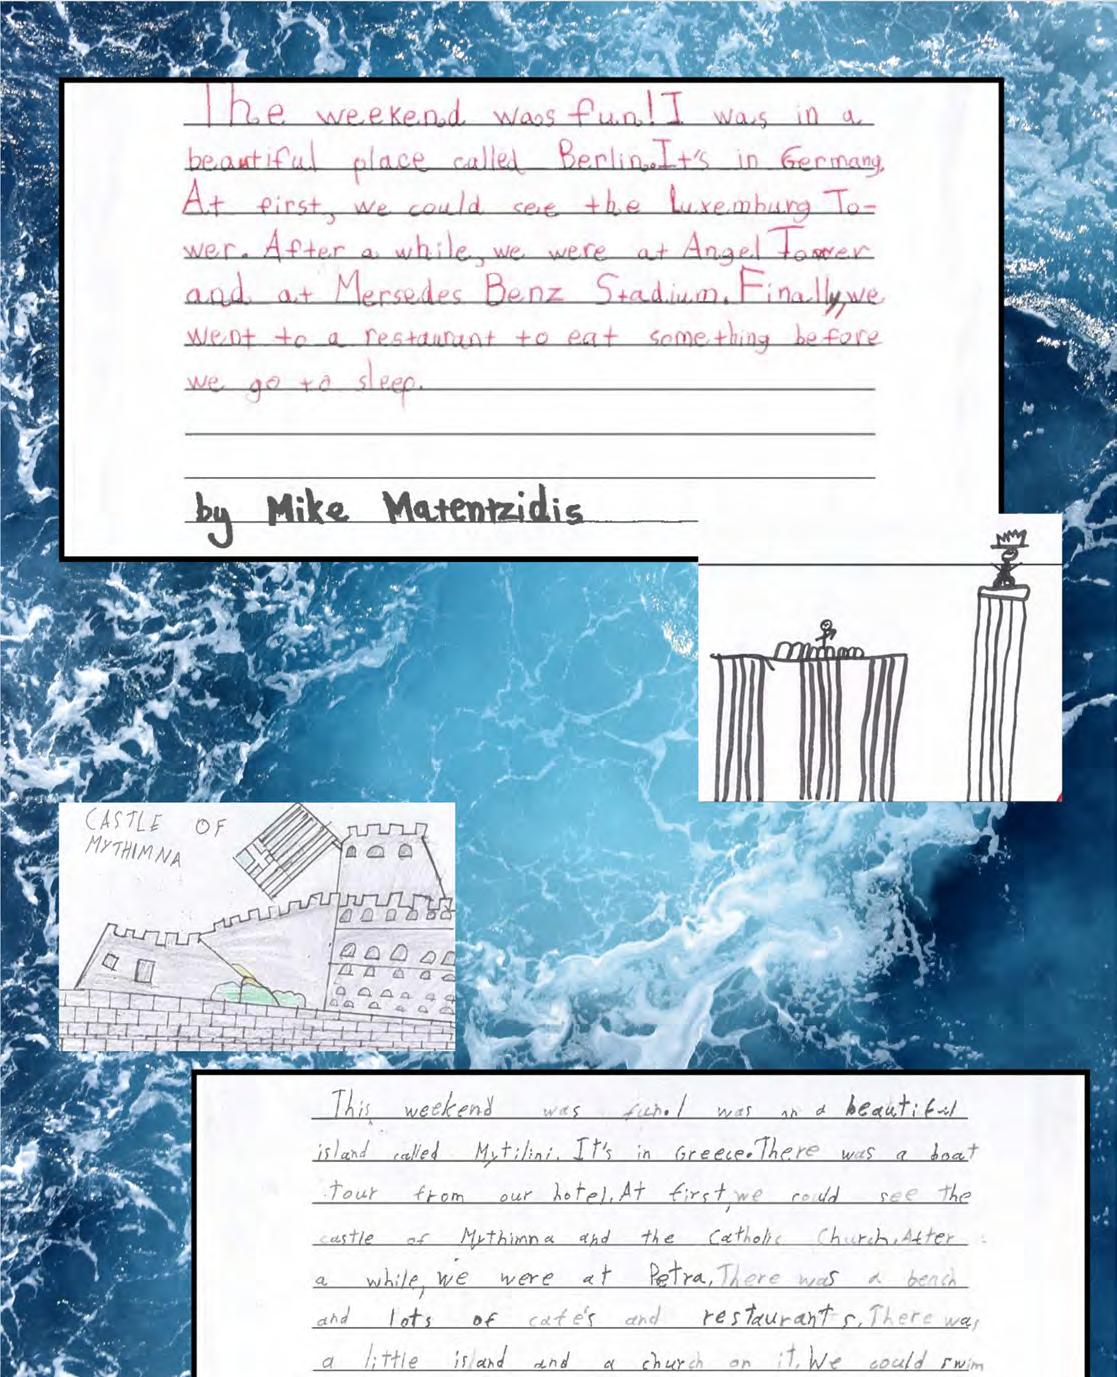 The weekend was fun! I was in a
beautiful place called Berlin. It's in Germany.
At first, we could see the Luxemburg To-
wer. After a while, we were at Angel Tower
and at Mersedes Benz Stadium. Finally, we
went to a restaurant to eat something before
we go to sleep.
by Mike Matentzidis
CASTLE OF
MYTHIMNA
This weekend was fun. I was in a beautiful
island called Mytilini. It's in Greece. There was a boat
tour from our hotel. At first, we could see the
castle of Mythimna and the Catholic Church. After
a while, we were at Petra. There was a beach
and lots of cafe's and restaurants. There was
a little island and a church on it. We could swim